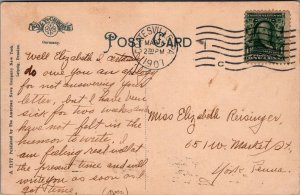 Germany.
POST CARD
MA
2 PM
1907
C
Well Elizabeth I certainly
do owe you an apology
for not answering your
letter, but I have been
sick for two weeks and
have not felt in the
humor to write. I
am feeling real well at
the present time and will
write you as soon as I
get time.
(over)
Miss Elizabeth Reisinger
651 W. Market St.
York, Penna.
A 7177 Published by The American News Company New York,
Leipzig, Dresden.